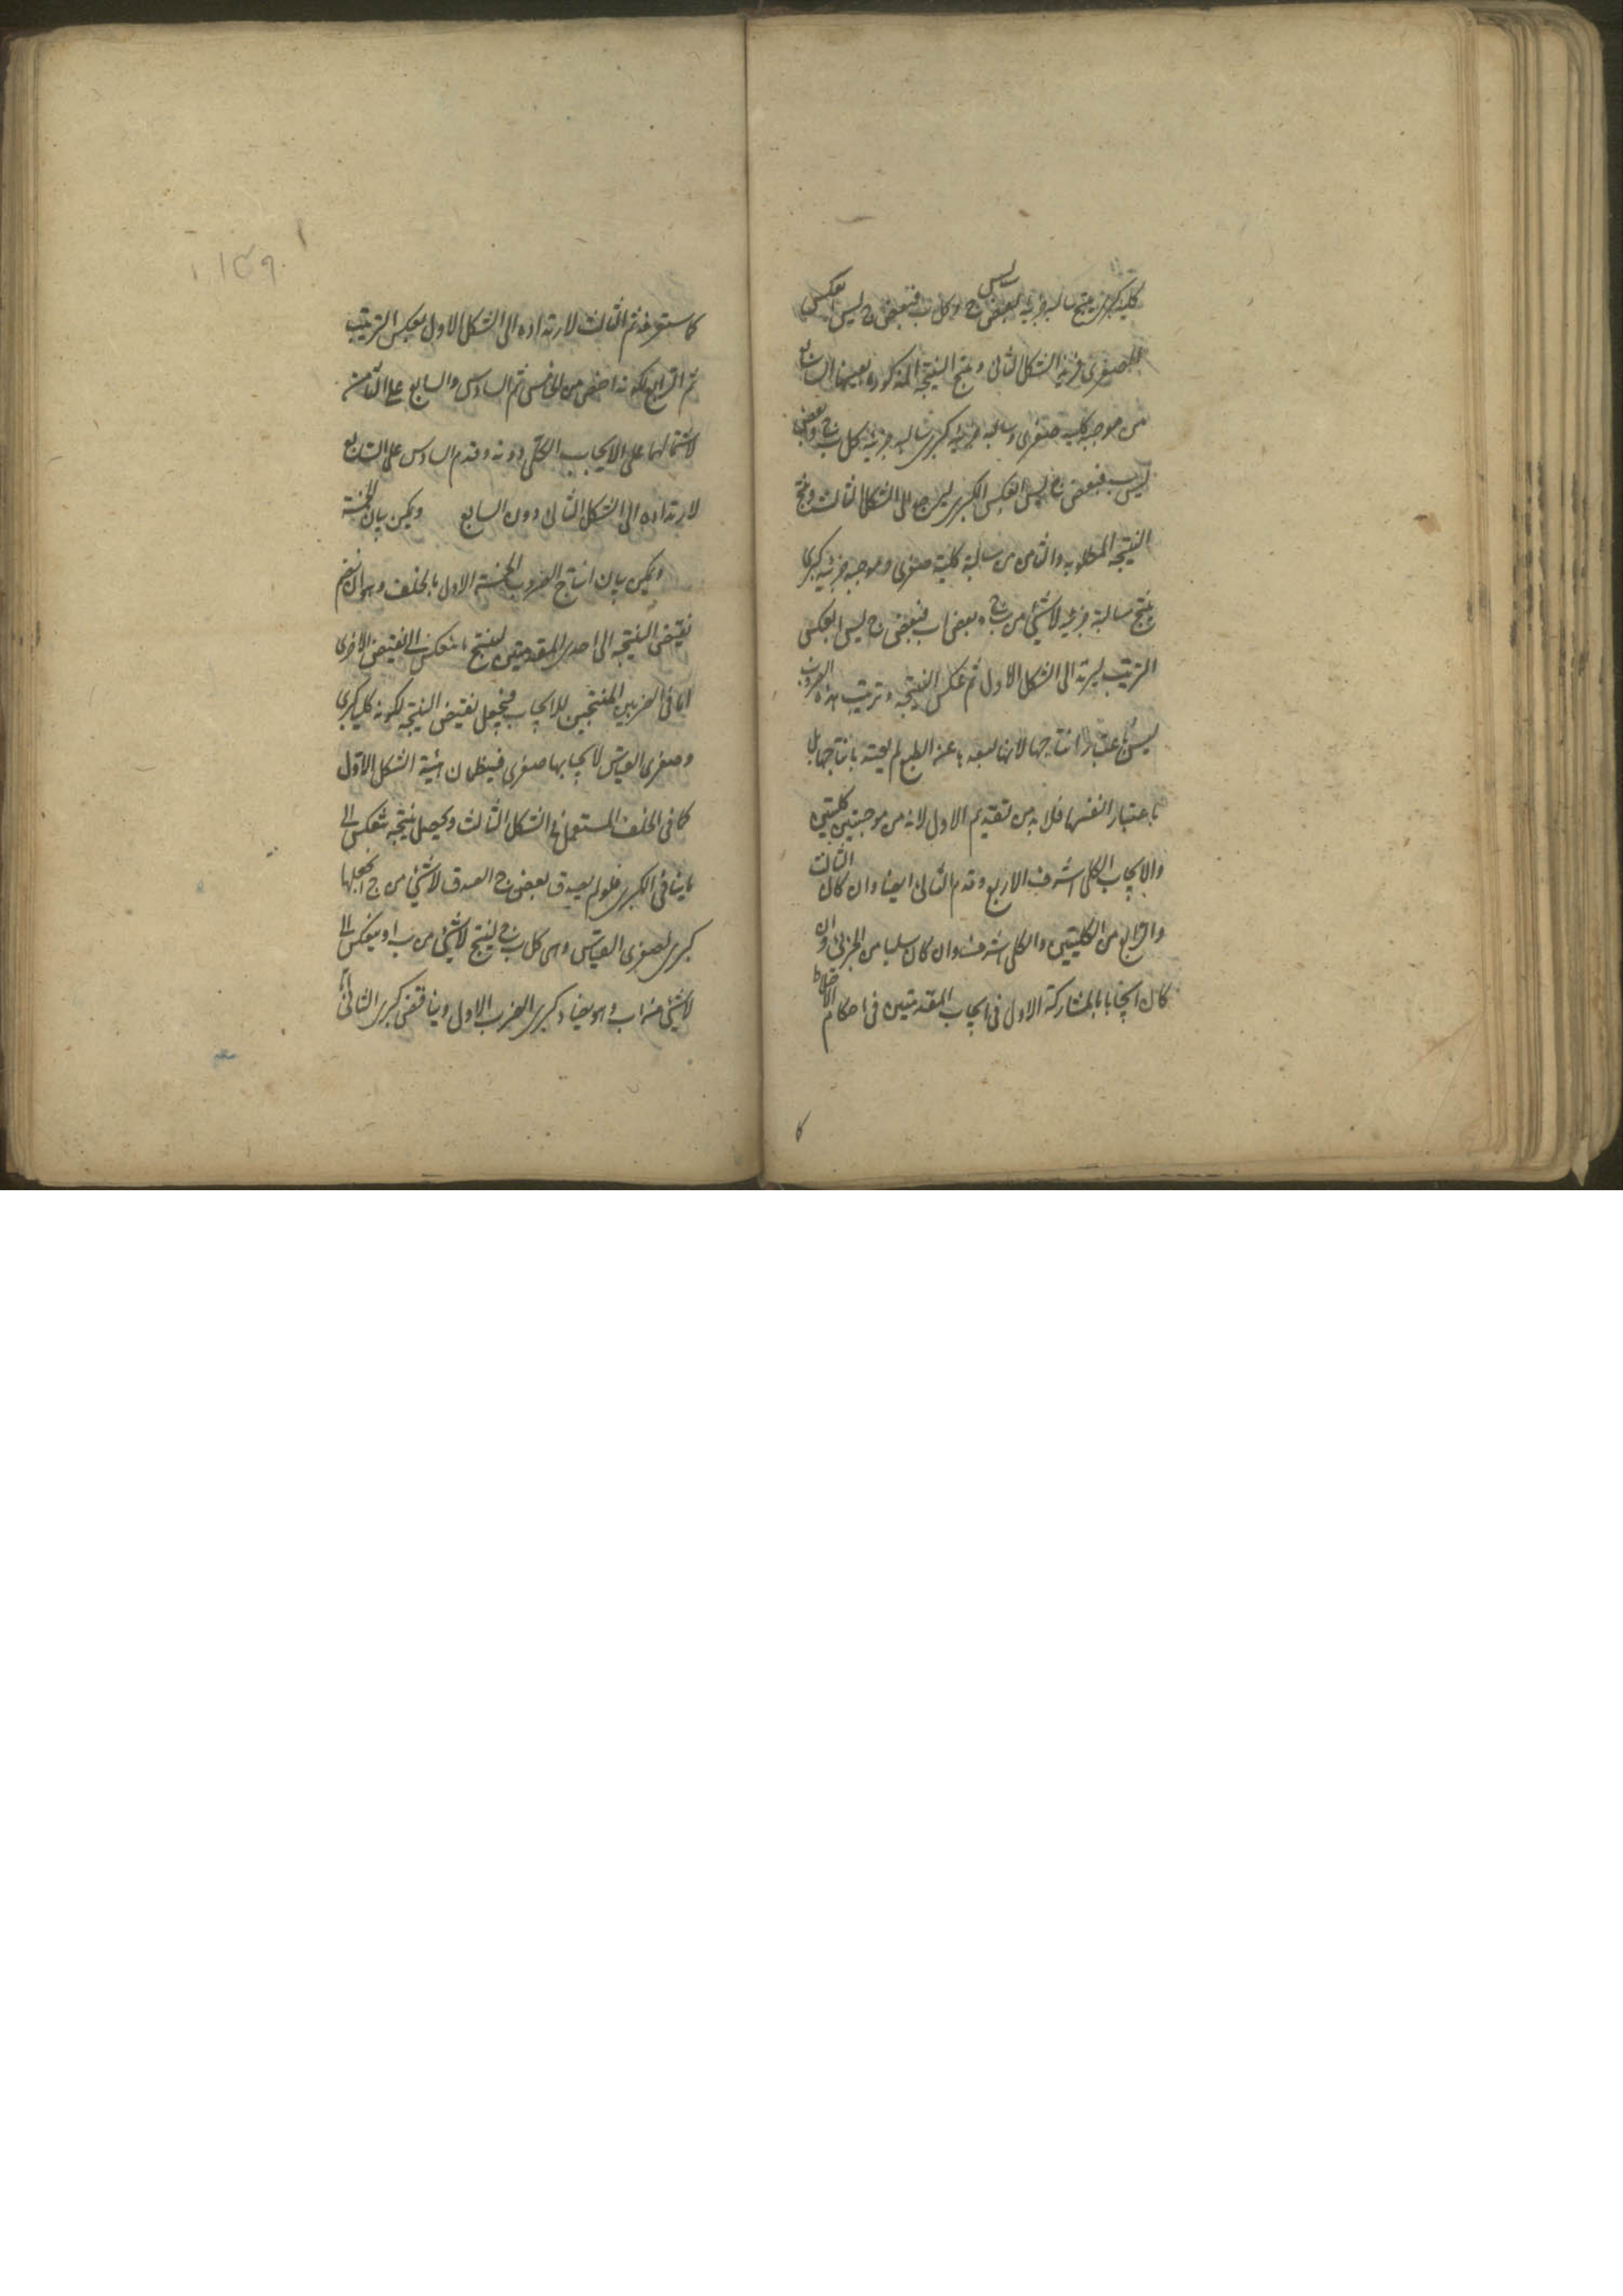 كلية كبرى ينتج سالبة جزئية بعض ب ليس ج وكل ا ب فبعض ج ليس ا بعكس
الصغرى ليرتد الى الشكل الثاني وينتج النتيجة المذكورة بعينها السابع
من موجبة كلية صغرى وسالبة جزئية كبرى سالبة جزئية كل ب ج وبعض
ا ليس ب فبعض ج ليس ا بعكس الكبرى ليرجع الى الشكل الثالث وينتج
النتيجة المطلوبة والثامن من سالبة كلية صغرى وموجبة جزئية كبرى
ينتج سالبة جزئية لا شيء من ب ج وبعض ا ب فبعض ج ليس ا بعكس
الترتيب ليرتد الى الشكل الاول ثم عكس النتيجة وترتيب هذه الضروب
ليس باعتبار انتاجها لانها لبعدها عن الطبع لم يعتد بانتاجها بل
باعتبار انفسها فلا بد من تقديم الاول لانه من موجبتين كليتين
والايجاب الكلي اشرف الاربع وقدم الثاني ايضا وان كان الثالث
والرابع من الكليتين والكلي اشرف وان كان سلبا من الجزئي وان
كان ايجابا بالمشاركة الاول في ايجاب المقدمتين في احكام الاختلاط
كا
كما ستعرفه ثم الثالث لارتداده الى الشكل الاول بعكس الترتيب
ثم الرابع لكونه اخص من الخامس ثم السادس والسابع على الثامن
لاشتمالهما على الايجاب الكلي دونه وقدم السادس على السابع
لارتداده الى الشكل الثاني دون السابع ويمكن بيان الخمسة
ويمكن بيان انتاج الضروب الخمسة الاول بالخلف وهو ان يضم
نقيض النتيجة الى احدى المقدمتين لينتج ما ينعكس الى نقيض الاخرى
اما في الضربين المنتجين للايجاب فيجعل نقيض النتيجة لكونه كليا كبرى
وصغرى القياس لايجابها صغرى فينتظمان هيئة الشكل الاول
كما في الخلف المستعمل في الشكل الثالث ويحصل نتيجة تنعكس الى
ما ينافي الكبرى فلو لم يصدق بعض ج ا لصدق لا شيء من ج ا نجعلها
كبرى لصغرى القياس وهى كل ب ج لينتج لا شيء من ب ا وينعكس الى
لا شيء من ا ب وهو يضاد كبرى الضرب الاول ويناقض كبرى الثاني